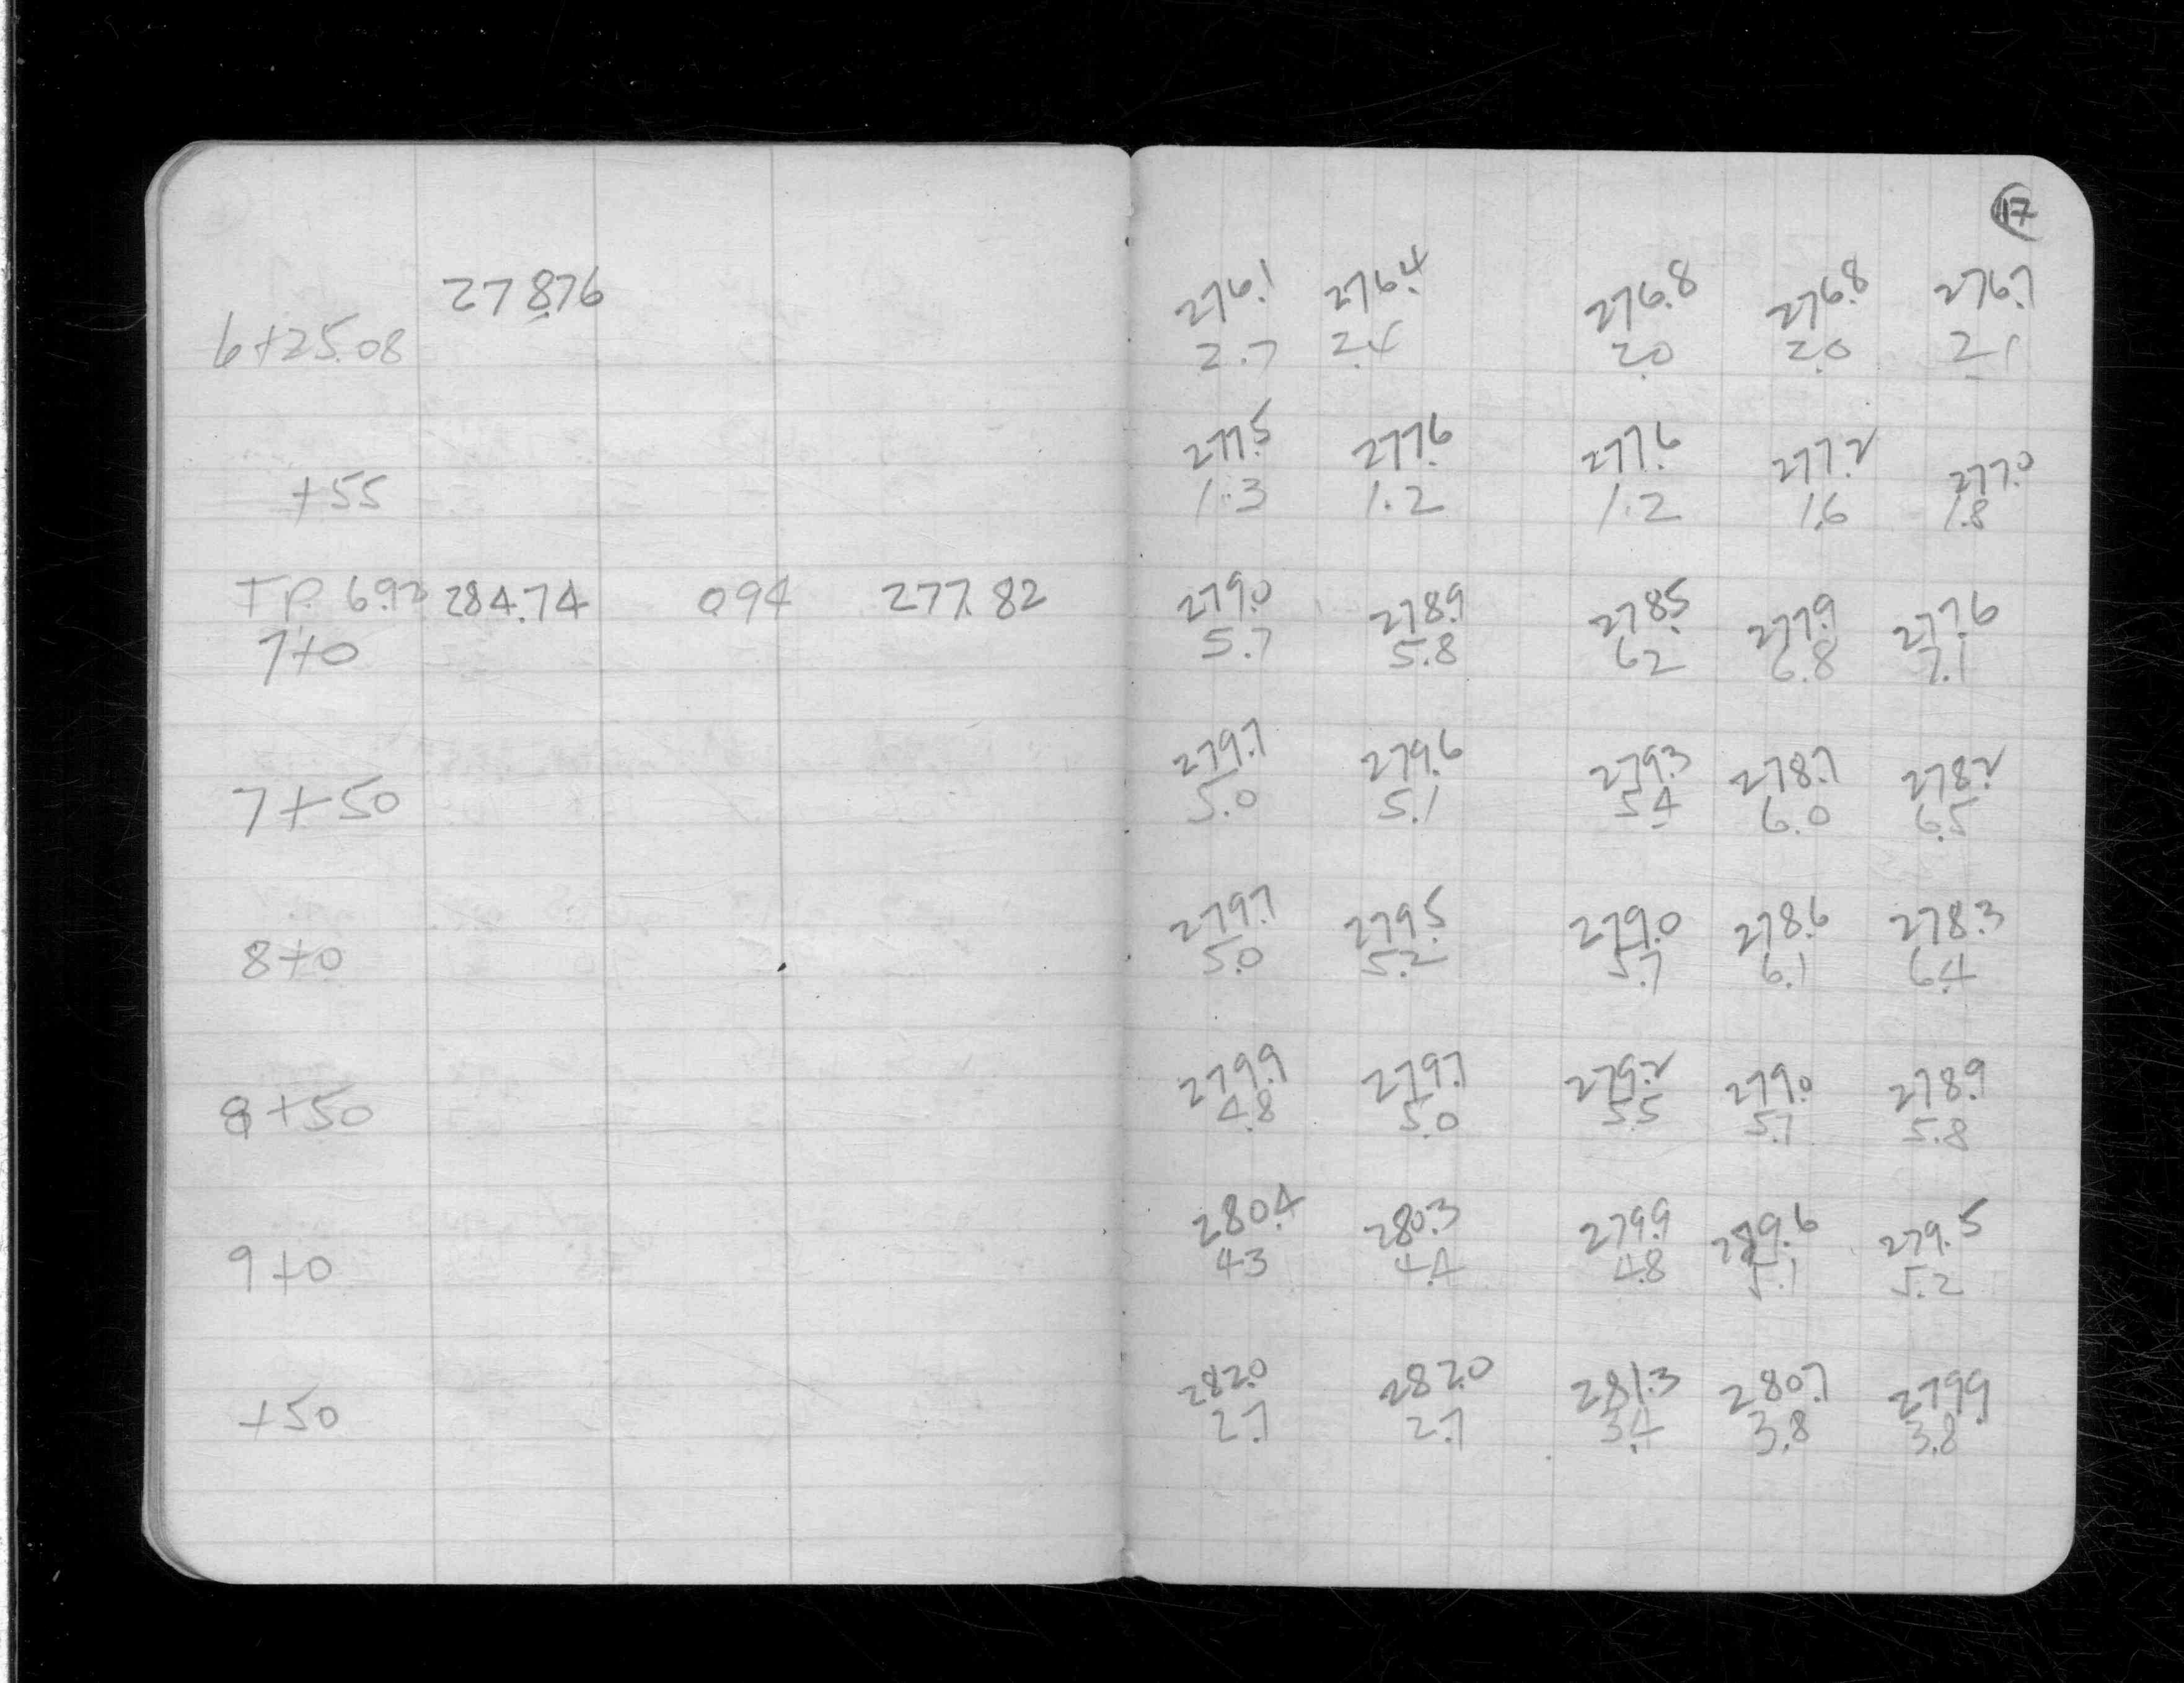 17
278.76
276.1 276.4 276.8 276.8 276.7
6+25.08 2.7 2.4 2.0 2.0 2.1
277.5 277.6 277.6 277.2 277.0
+55 1.3 1.2 1.2 1.6 1.8
T.P. 6.92 284.74 094 277.82 279.0 278.9 278.5 277.9 277.6
7+0 5.7 5.8 62 6.8 7.1
279.7 279.6 279.3 278.7 278.2
7+50 5.0 5.1 5.4 6.0 6.5
279.7 279.5 279.0 278.6 278.3
8+0 5.0 5.2 5.7 6.1 6.4
279.9 279.7 279.2 279.0 278.9
8+50 4.8 5.0 5.5 5.7 5.8
280.4 280.3 279.9 279.6 279.5
9+0 43 4.4 4.8 5.1 5.2
282.0 282.0 281.3 280.7 279.9
+50 2.7 2.7 3.4 3.8 3.8